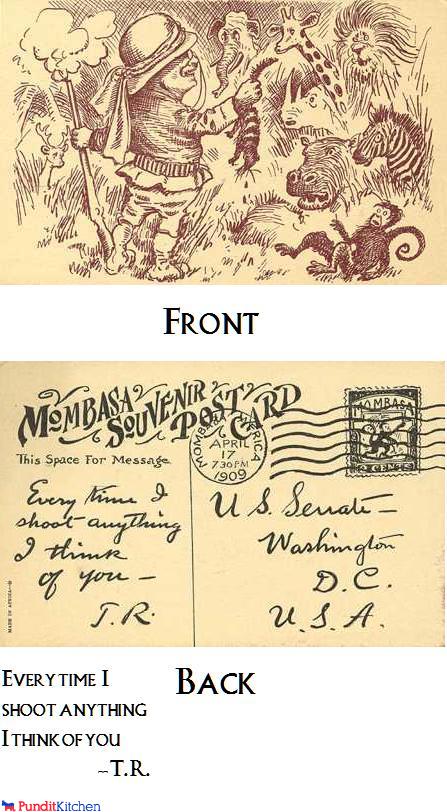 FRONT
MOMBASA SOUVENIR POST CARD
This Space For Message.
MOMBASA AFRICA
APRIL
17
7 30 PM
1909
MOMBASA
2 CENTS
Every time I
shoot anything
I think
of you —
T.R.
U.S. Senate —
Washington
D.C.
U.S.A.
MADE IN AFRICA
BACK
EVERY TIME I
SHOOT ANYTHING
I THINK OF YOU
~T.R.
PunditKitchen